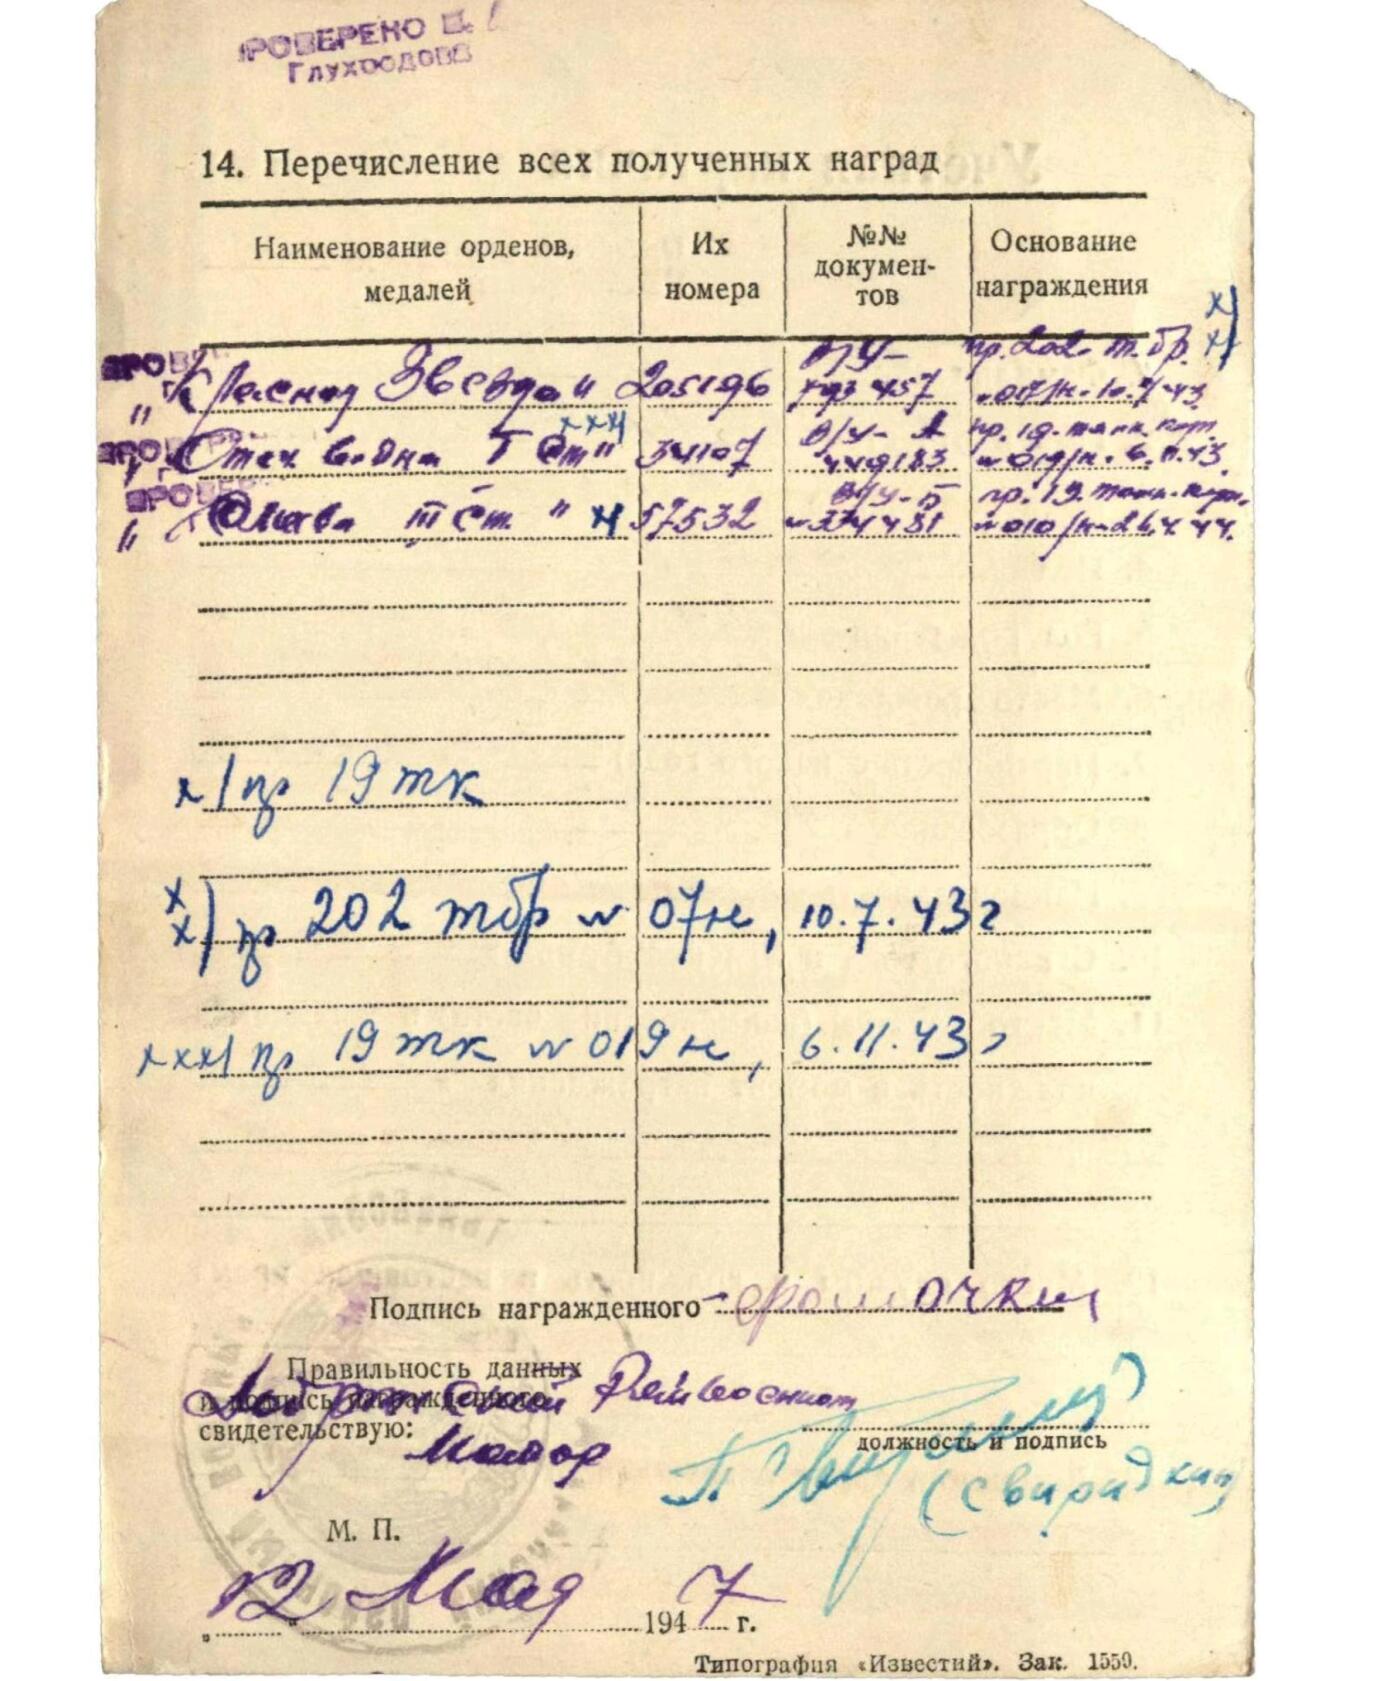 ПРОВЕРЕНО
14. Перечисление всех полученных наград
Наименование орденов, медалей
Их номера
№№ докумен-тов
Основание награждения
"Красная Звезда" 205196 457 пр. 202 т. бр. 10.7.43
х х)
Отеч. войны I ст" ххх) 34107 в/у- А 449183 пр. 19 танк. корп. №019/н. 6.11.43.
"Слава III ст." х) 57532 в/у-Б №374481 пр. 19 танк. корп. №010/н-26.4.44.
х) пр 19 тк
х х) пр 202 тбр № 07н, 10.7.43г
ххх) пр 19 тк № 019н, 6.11.43 г
Подпись награжденного
Правильность данных
и подпись награжденного
свидетельствую:
Майор
должность и подпись
(Свиридкин)
М. П.
„12" Мая 1947 г.
Типография «Известий». Зак. 1559.